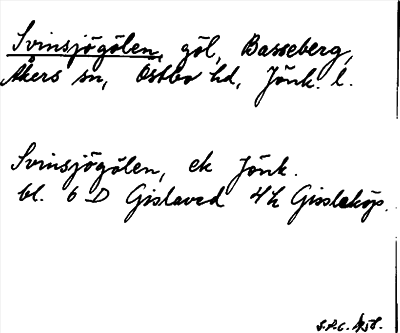 Svinsjögölen, göl, Basseberg,
Åkers sn, Östbo hd, Jönk. l.
Svinsjögölen, ek Jönk.
bl. 6 D Gislaved 4h Gissleköp.